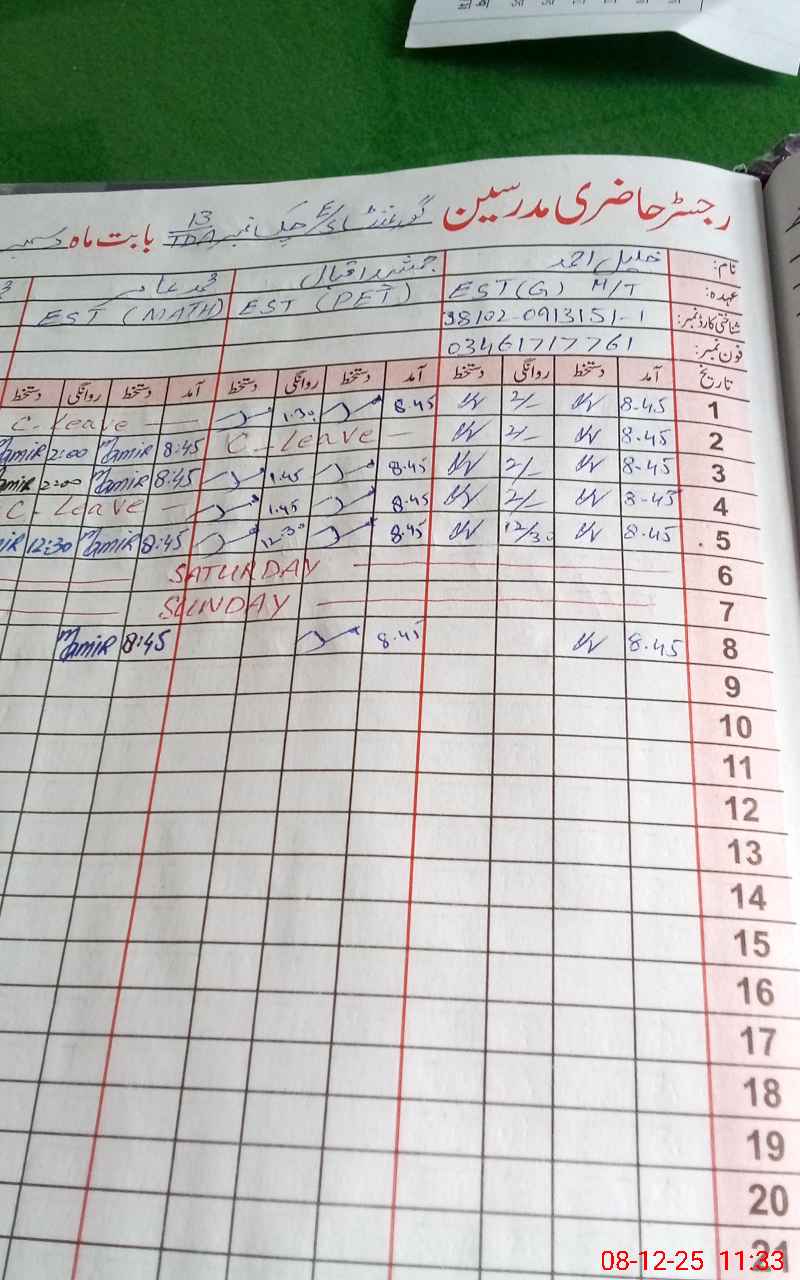 رجسٹر حاضری مدرسین گورنمنٹ E/S چک نمبر 13/TDA بابت ماہ دسمبر
نام: خلیل احمد جمشید اقبال محمد عامر
عہدہ: EST(G) H/T EST (PET) EST (MATH)
شناختی کارڈ نمبر: 38102-0913151-1
فون نمبر: 03461717761
تاریخ آمد دستخط روانگی دستخط آمد دستخط روانگی دستخط آمد دستخط روانگی دستخط
1 8.45 2/- 8.45 1.30 C-Leave
2 8.45 2/- C-Leave 8:45 Mamir 2:00 Mamir
3 8.45 2/- 8.45 1.45 8:45 Mamir 2:00 Mamir
4 8.45 2/- 8.45 1.45 C-Leave
5 8.45 12/30 8.45 12.30 8:45 Mamir 12:30
6 SATURDAY
7 SUNDAY
8 8.45 8.45 8:45 Mamir
9
10
11
12
13
14
15
16
17
18
19
20
21
08-12-25 11:33